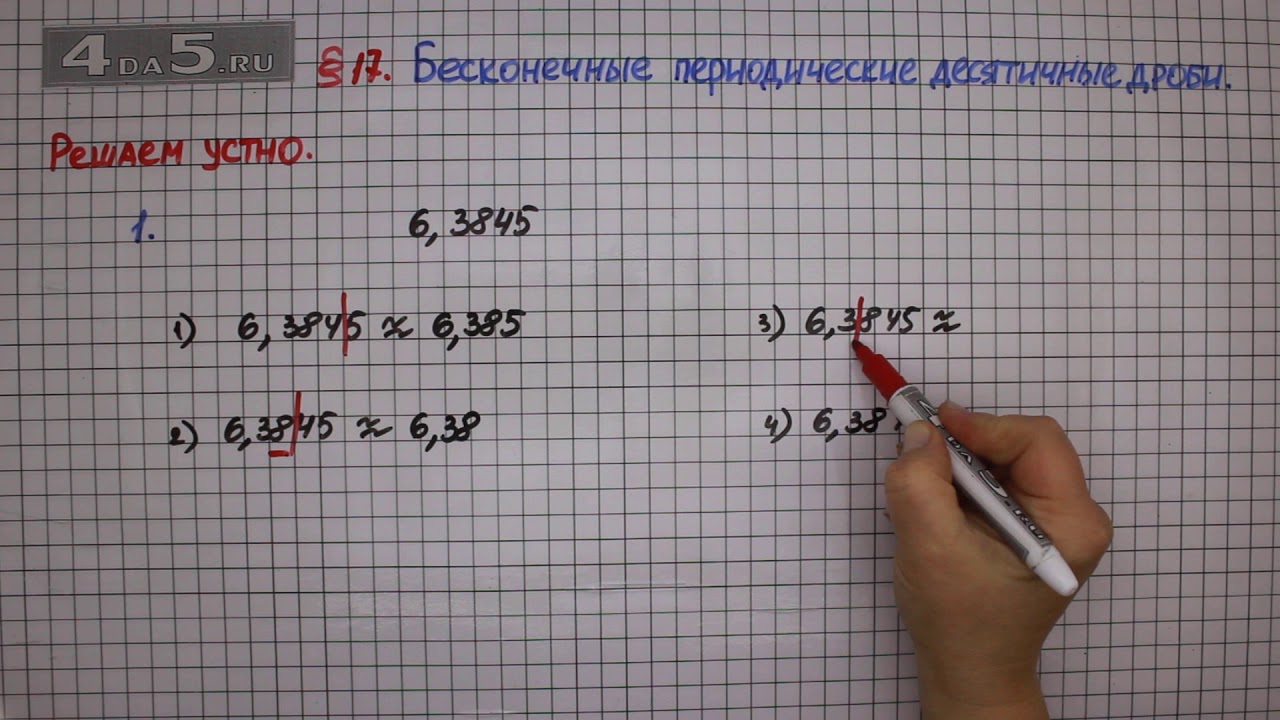 4DA5.RU § 17. Бесконечные периодические десятичные дроби.
Решаем устно.
1. 6,3845
1) 6,3845 ≈ 6,385
3) 6,3845 ≈
2) 6,3845 ≈ 6,38
4) 6,38